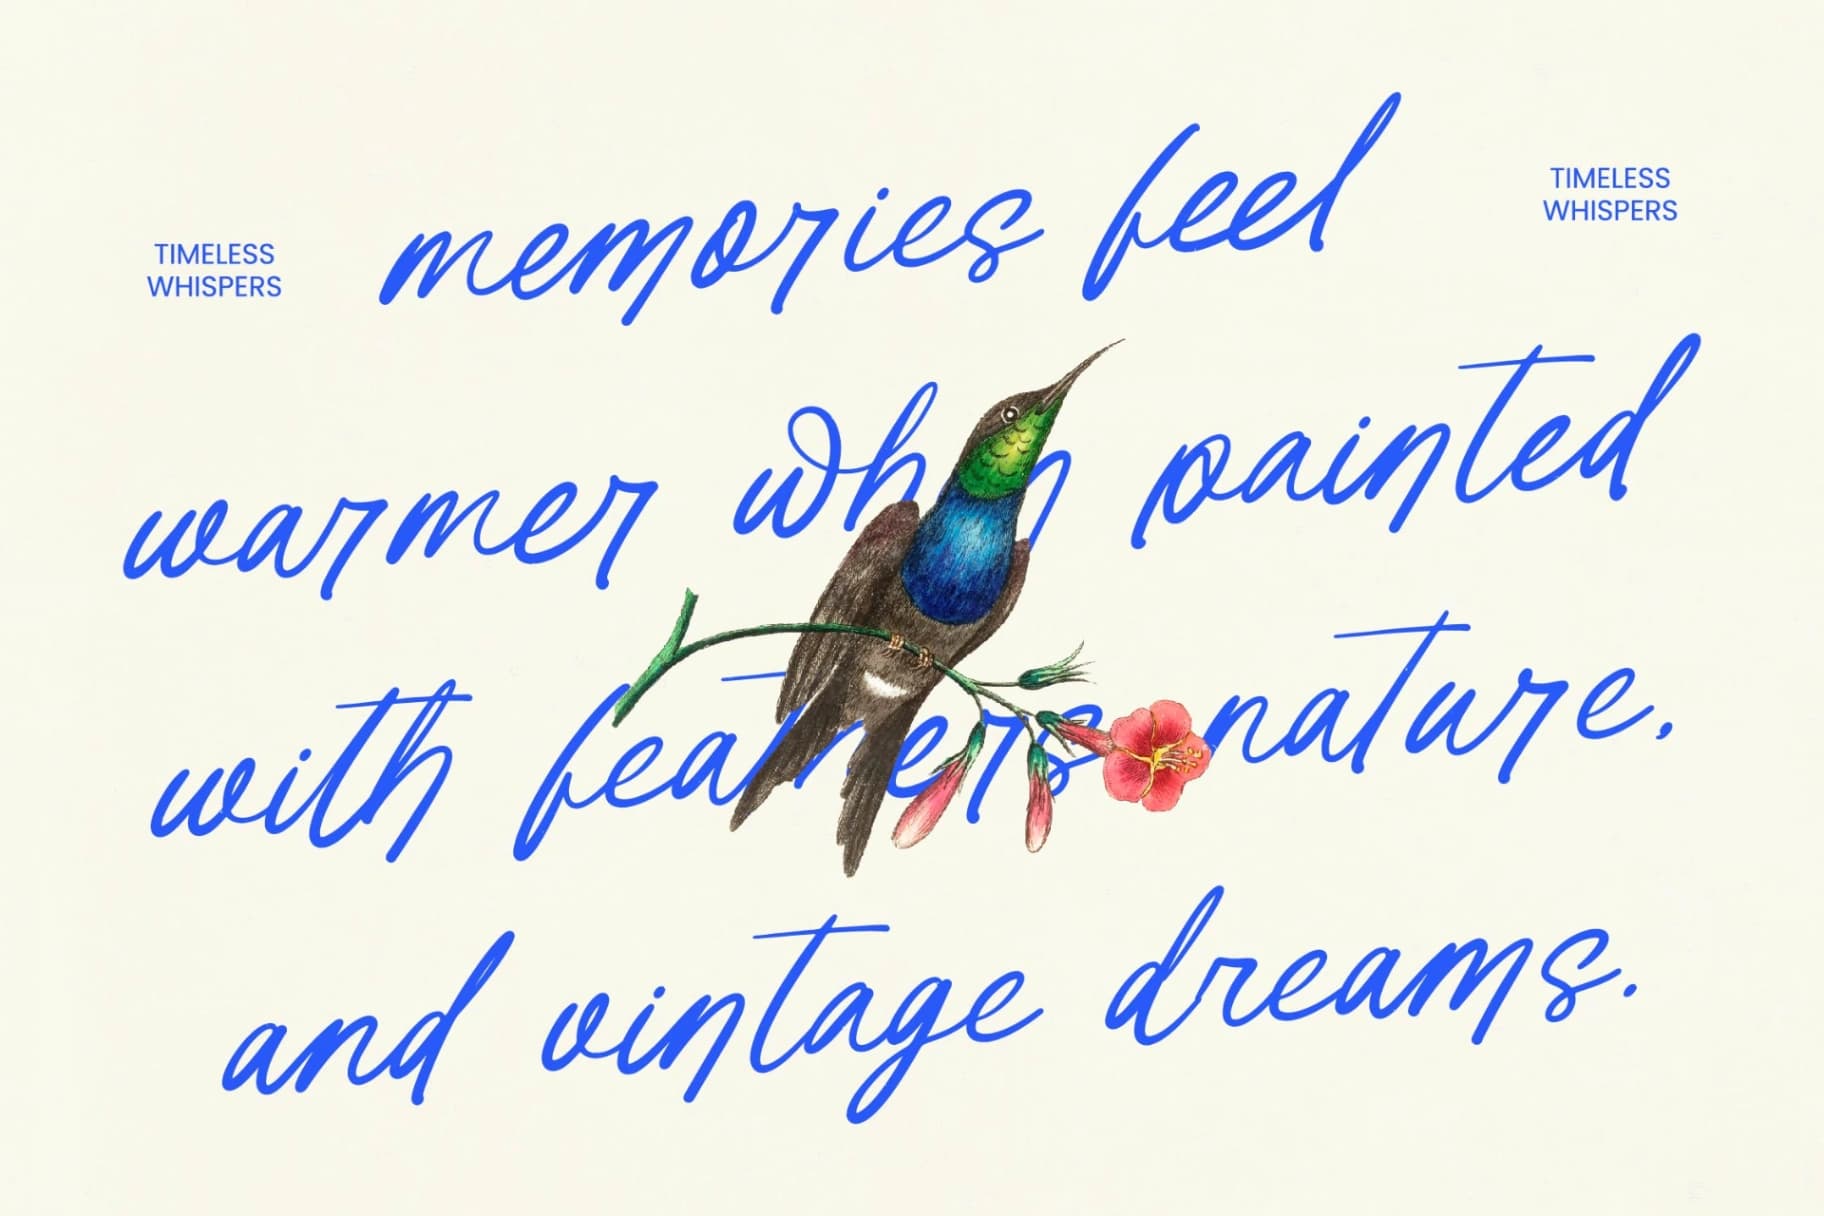 TIMELESS
WHISPERS
TIMELESS
WHISPERS
memories feel
warmer when painted
with feathers nature,
and vintage dreams.